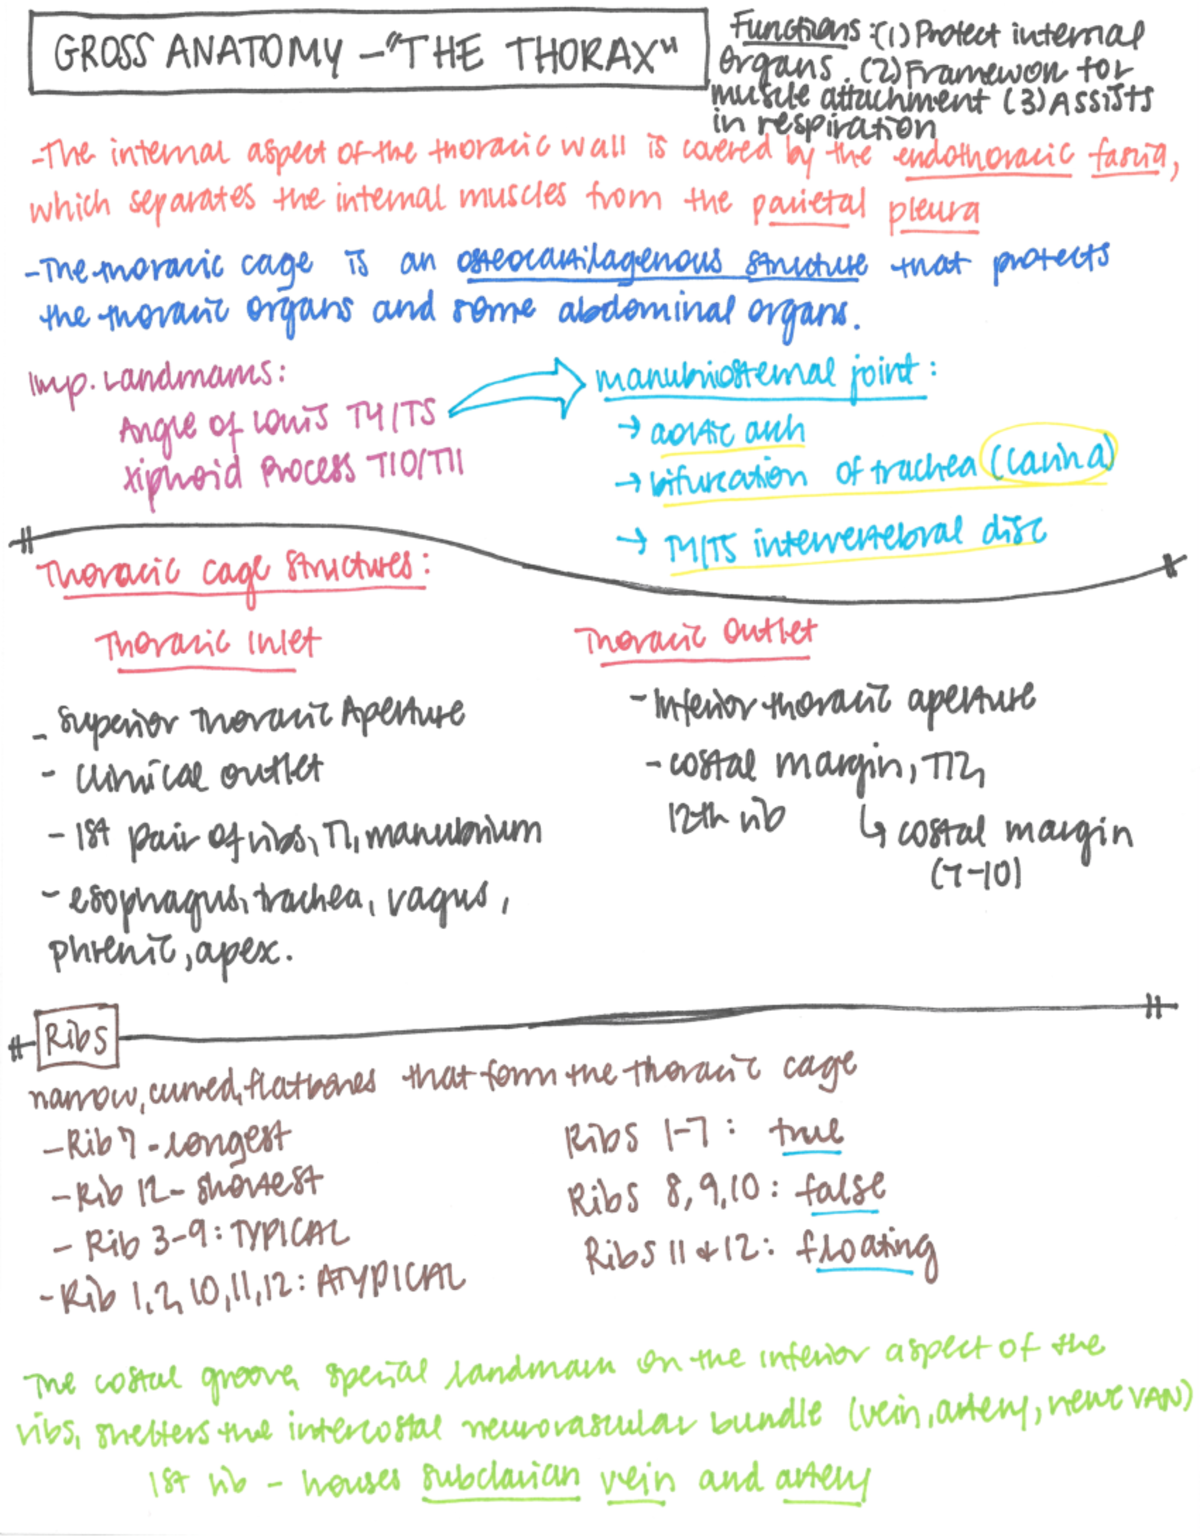 GROSS ANATOMY - "THE THORAX"
Functions: (1) Protect internal
organs. (2) Framework for
muscle attachment (3) Assists
in respiration
- The internal aspect of the thoracic wall is covered by the endothoracic fascia,
which separates the internal muscles from the parietal pleura
- The thoracic cage is an osteocartilagenous structure that protects
the thoracic organs and some abdominal organs.
Imp. Landmarks:
Angle of Louis T4/T5
Xiphoid Process T10/T11
manubriosternal joint:
→ aortic arch
→ bifurcation of trachea (carina)
→ T4/T5 intervertebral disc
Thoracic cage structures:
Thoracic Inlet
- Superior Thoracic Aperture
- Clinical outlet
- 1st pair of ribs, T1, manubrium
- esophagus, trachea, vagus,
phrenic, apex.
Thoracic Outlet
- Inferior thoracic aperture
- costal margin, T12,
12th rib
↳ costal margin
(7-10)
Ribs
narrow, curved, flat bones that form the thoracic cage
- Rib 7 - longest
- Rib 12 - shortest
- Rib 3-9: TYPICAL
- Rib 1, 2, 10, 11, 12: ATYPICAL
Ribs 1-7: true
Ribs 8, 9, 10: false
Ribs 11 & 12: floating
The costal groove, special landmark on the inferior aspect of the
ribs, shelters the intercostal neurovascular bundle (vein, artery, nerve VAN)
1st rib - houses subclavian vein and artery